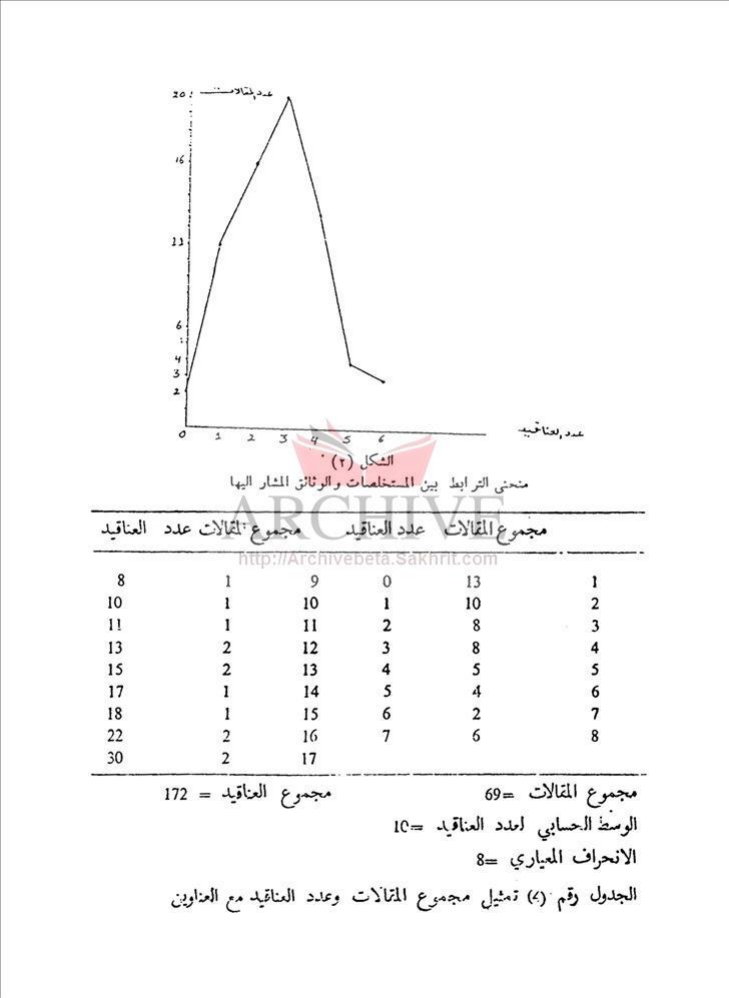 عدد المقالات
20
16
11
6
4
3
2
0 1 2 3 4 5 6
عدد العناقيد
الشكل (٢)
منحنى الترابط بين المستخلصات والوثائق المشار اليها
ARCHIVE
http://Archivebeta.Sakhrit.com
مجموع المقالات عدد العناقيد مجموع المقالات عدد العناقيد
1 13 0 9 1 8
2 10 1 10 1 10
3 8 2 11 1 11
4 8 3 12 2 13
5 5 4 13 2 15
6 4 5 14 1 17
7 2 6 15 1 18
8 6 7 16 2 22
17 2 30
مجموع المقالات =69 مجموع العناقيد = 172
الوسط الحسابي لعدد العناقيد =10
الانحراف المعياري =8
الجدول رقم تمثيل مجموع المقالات وعدد العناقيد مع العناوين